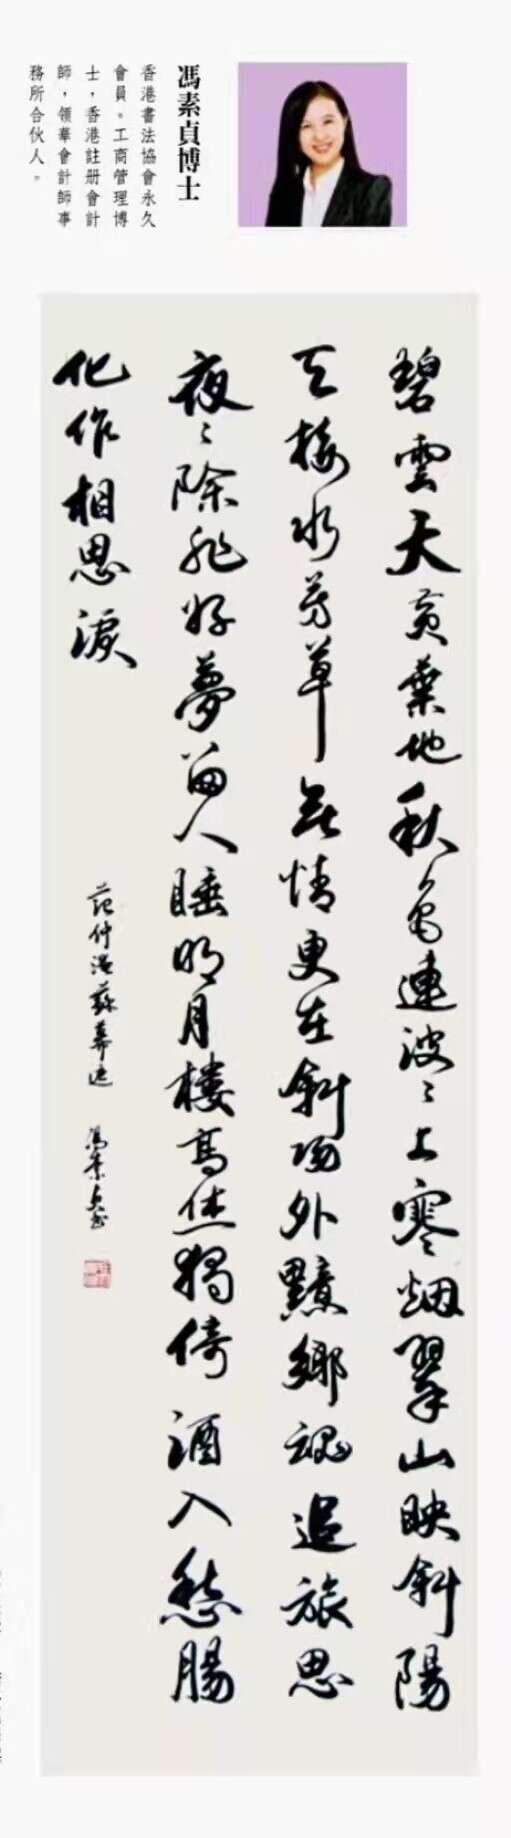 馮素貞博士
香港書法協會永久
會員。工商管理博
士，香港註册會計
師，領華會計師事
務所合伙人。
碧雲天黄葉地秋色連波〻上寒烟翠山映斜陽
天接水芳草無情更在斜陽外黯鄉魂追旅思
夜〻除非好夢留人睡明月樓高休獨倚酒入愁腸
化作相思淚
范仲淹蘇幕遮 馮素貞書